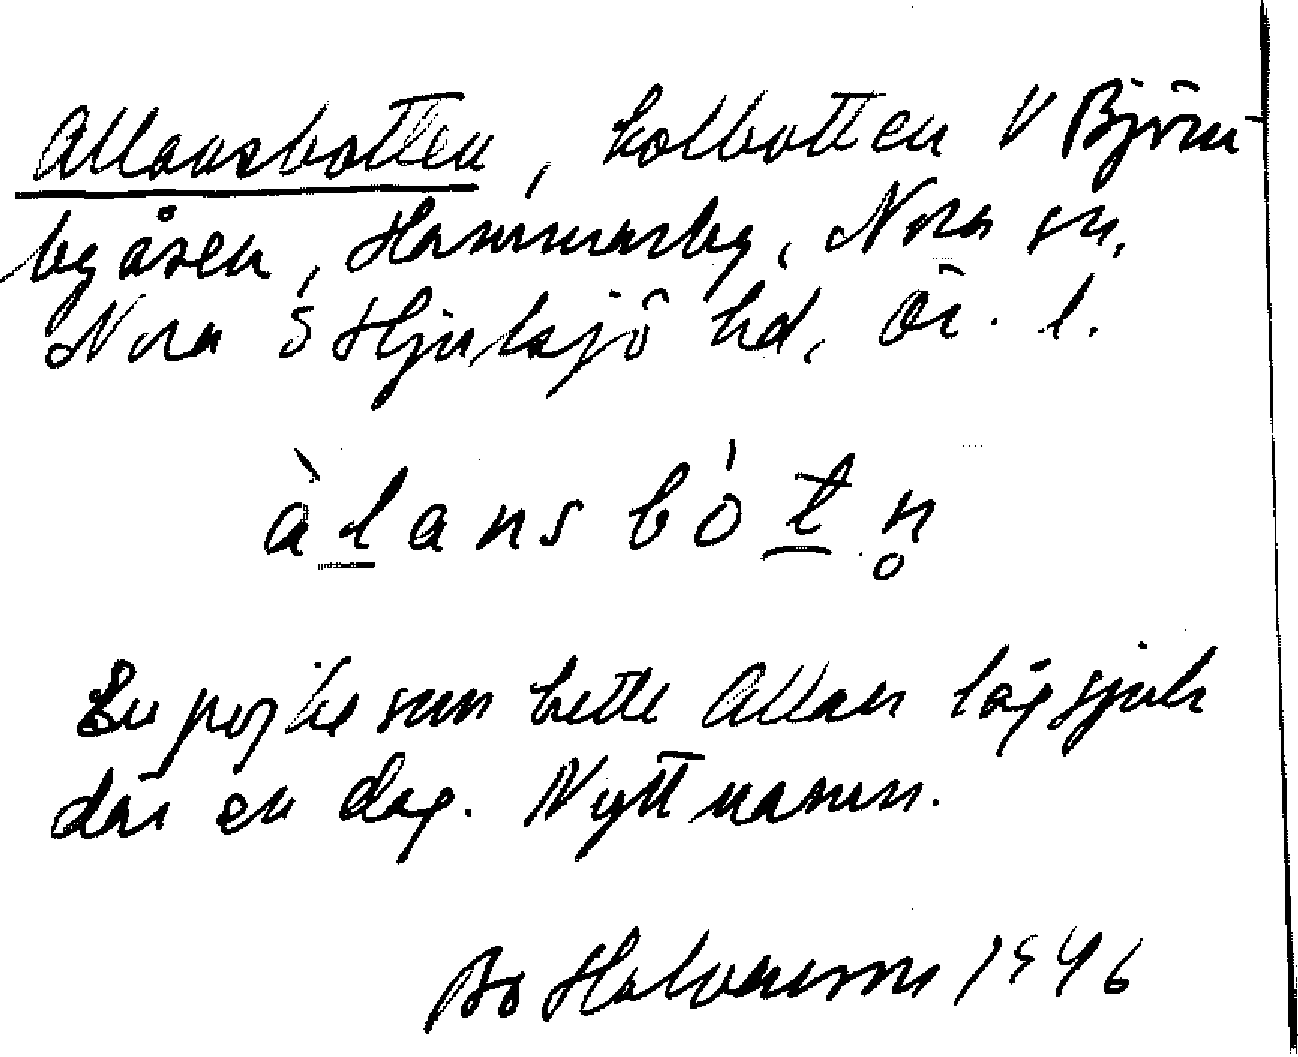 Allansbotten, kolbotten V Björn-
byåsen, Hammarby, Nora sn,
Nora o Hjulsjö hd, Ör. l.
àlansbótn̥
En pojke som hette Allan låg sjuk
där en dag. Nytt namn.
Bo Halvarsson 1946